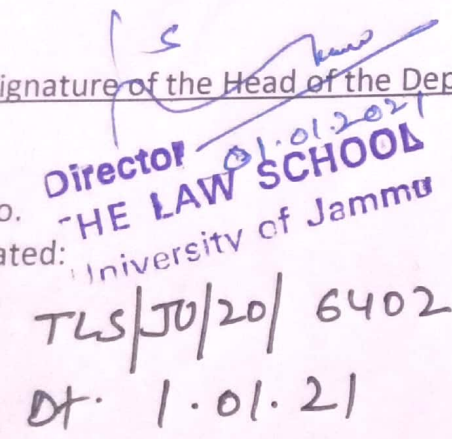 ignature of the Head of the Dep
01.01.2021
Director
THE LAW SCHOOL
o.
University of Jammu
ated:
TLS/JU/20/ 6402
Dt. 1.01.21